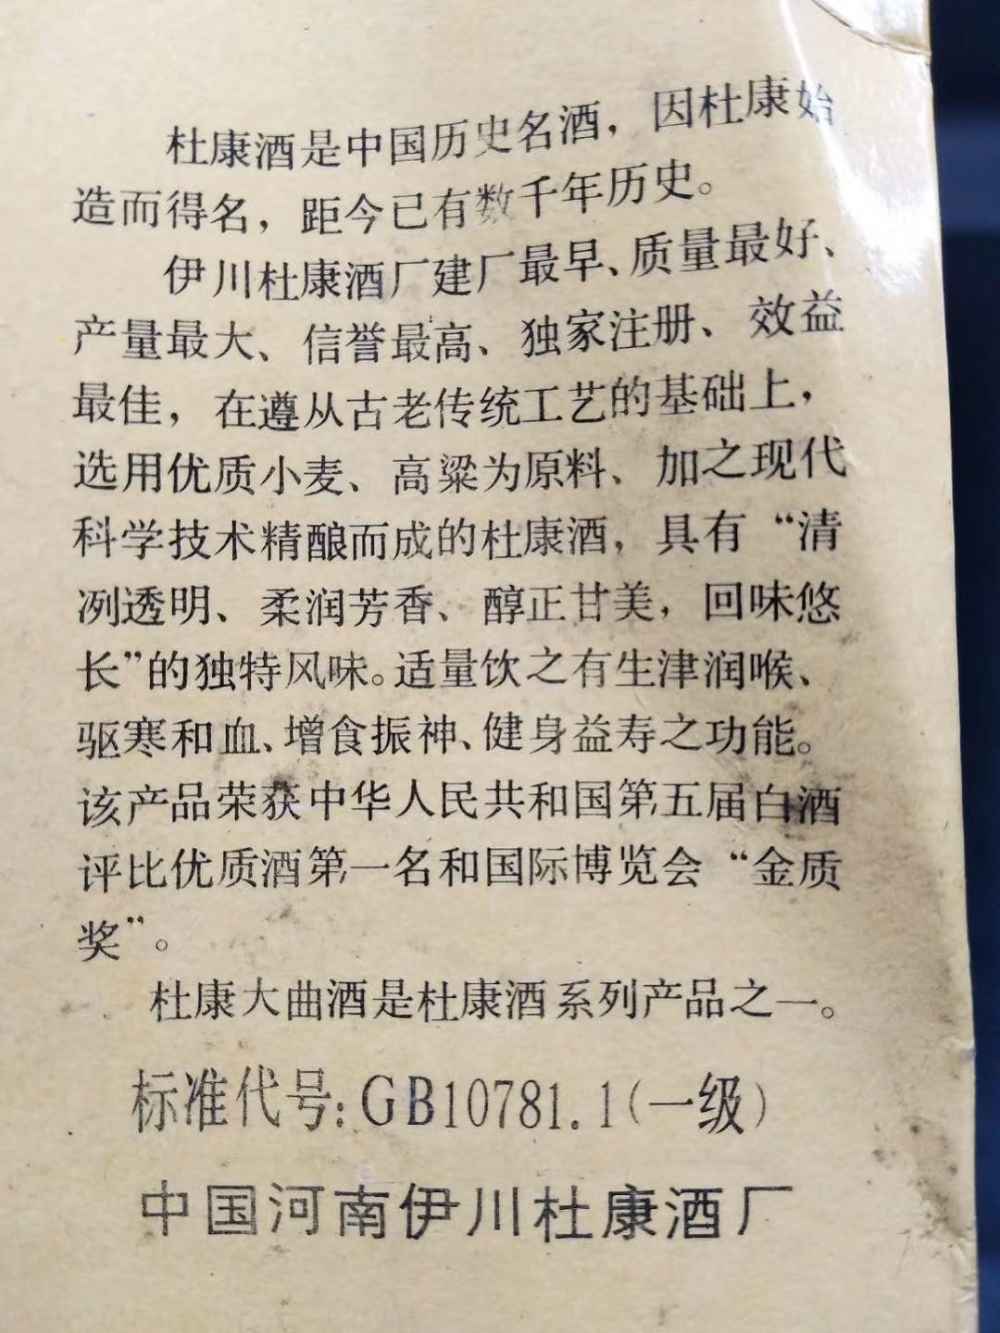 杜康酒是中国历史名酒，因杜康始
造而得名，距今已有数千年历史。
伊川杜康酒厂建厂最早、质量最好、
产量最大、信誉最高、独家注册、效益
最佳，在遵从古老传统工艺的基础上，
选用优质小麦、高粱为原料、加之现代
科学技术精酿而成的杜康酒，具有“清
冽透明、柔润芳香、醇正甘美，回味悠
长”的独特风味。适量饮之有生津润喉、
驱寒和血、增食振神、健身益寿之功能。
该产品荣获中华人民共和国第五届白酒
评比优质酒第一名和国际博览会“金质
奖”。
杜康大曲酒是杜康酒系列产品之一。
标准代号：GB10781.1（一级）
中国河南伊川杜康酒厂